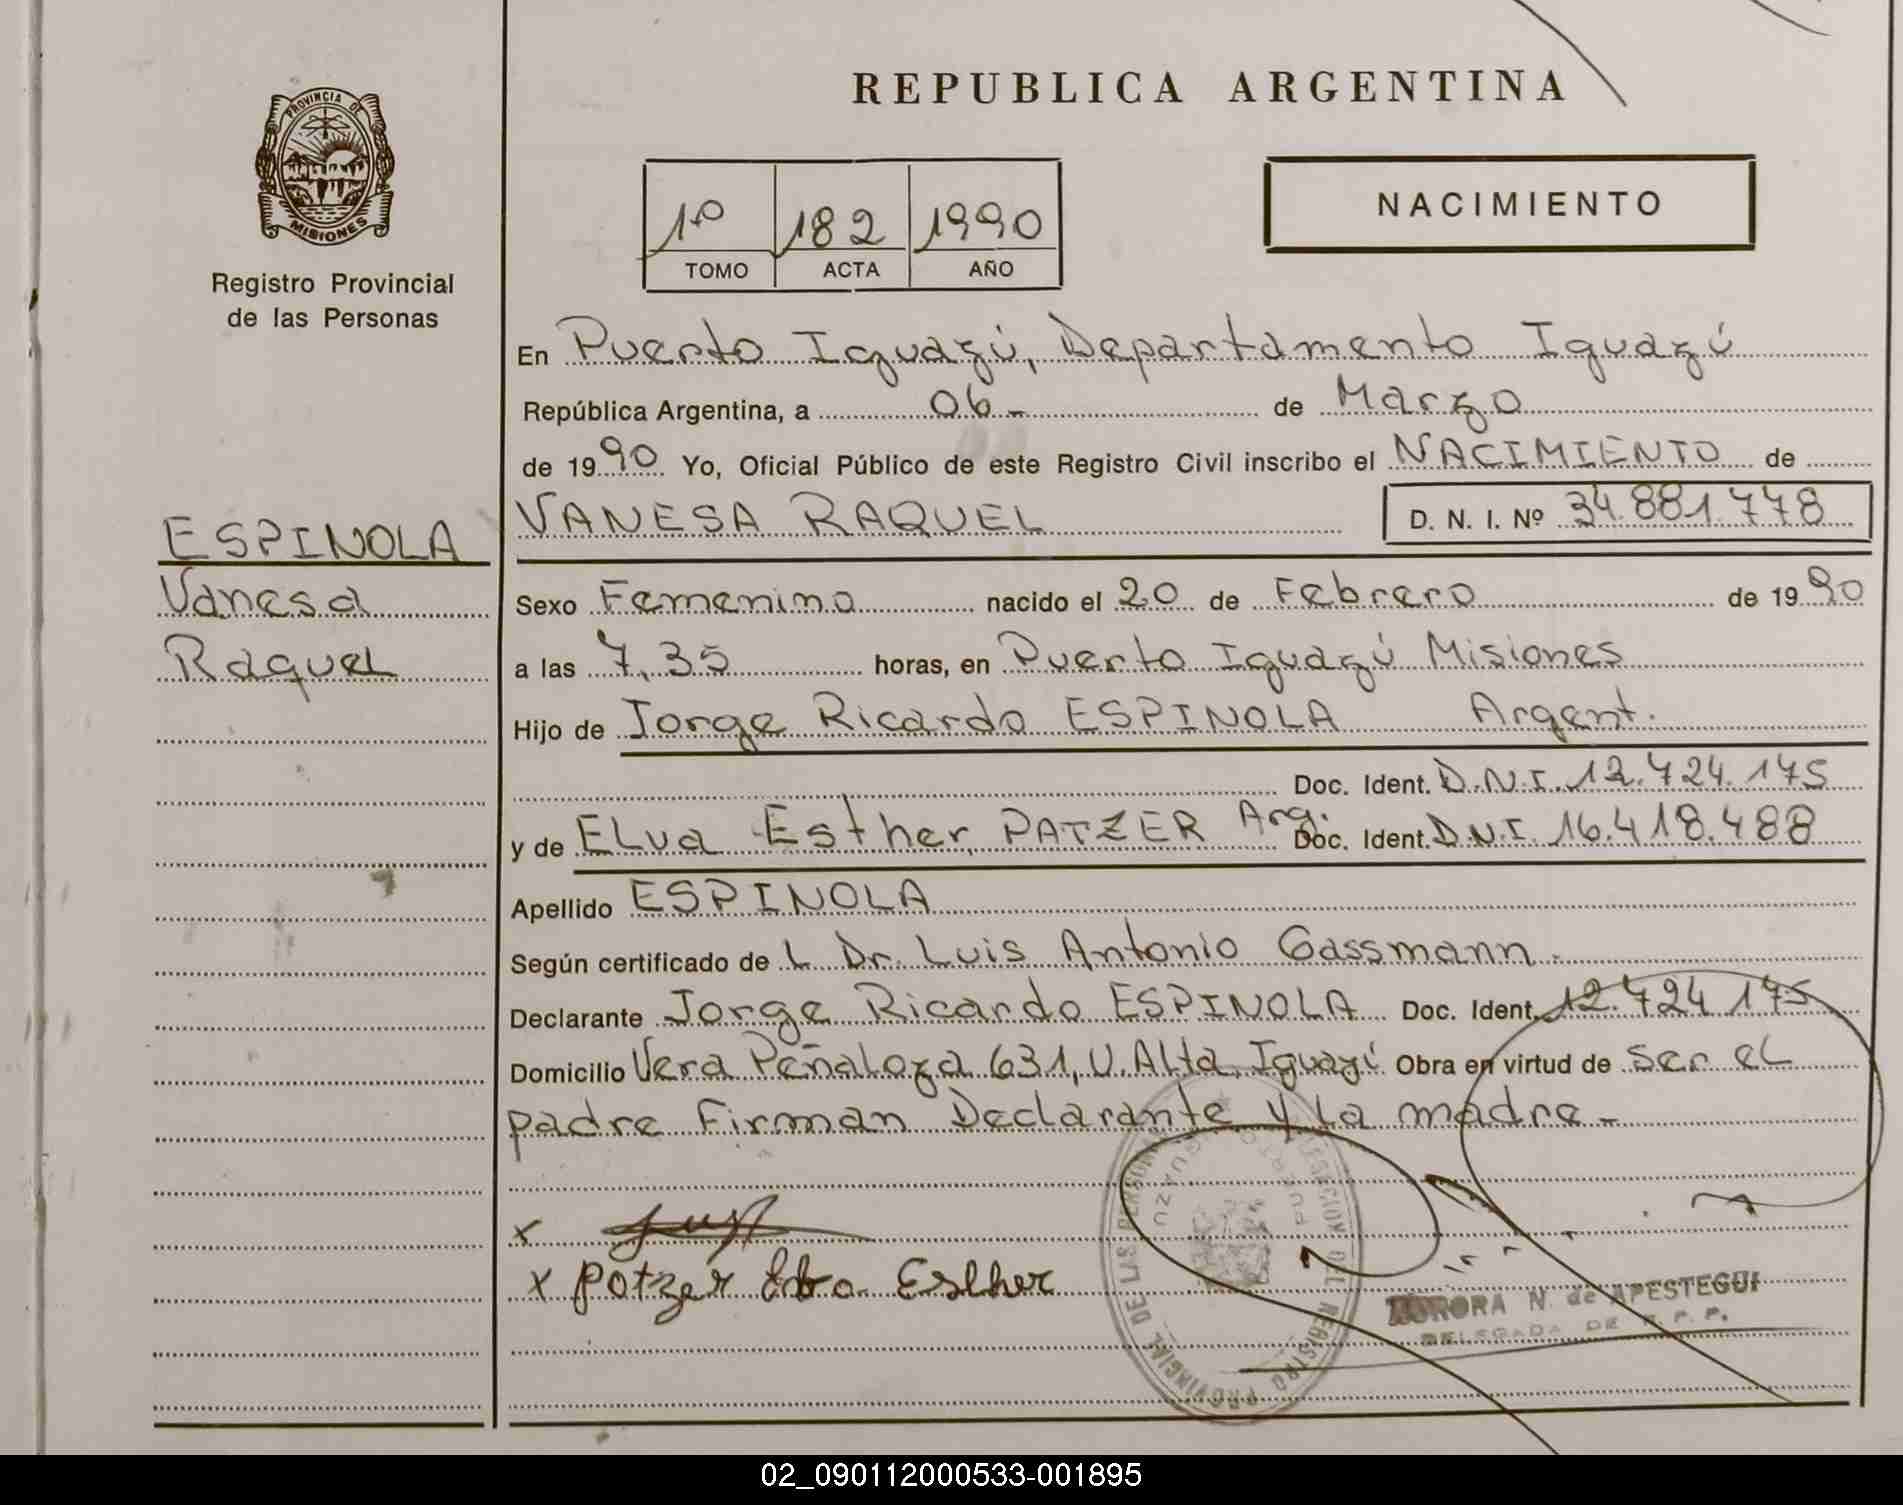 REPUBLICA ARGENTINA
PROVINCIA DE MISIONES
Registro Provincial
de las Personas
1º 182 1990
TOMO ACTA AÑO
NACIMIENTO
En Puerto Iguazú, Departamento Iguazú
República Argentina, a 06- de Marzo
de 1990 Yo, Oficial Público de este Registro Civil inscribo el NACIMIENTO de
VANESA RAQUEL D. N. I. Nº 34.881.778
ESPINOLA
Vanesa
Raquel
Sexo Femenino nacido el 20 de Febrero de 1990
a las 7,35 horas, en Puerto Iguazú Misiones
Hijo de Jorge Ricardo ESPINOLA Argent.
Doc. Ident. D.N.I. 12.724.175
y de ELva Esther PATZER Arg. Doc. Ident. D.N.I. 16.418.488
Apellido ESPINOLA
Según certificado de L Dr. Luis Antonio Gassmann.
Declarante Jorge Ricardo ESPINOLA Doc. Ident. 12.724.175
Domicilio Vera Peñaloza 631, V. Alta, Iguazú Obra en virtud de ser eL
padre Firman Declarante y La madre-
x
x Patzer Elva Esther
REGISTRO PROVINCIAL DE LAS PERSONAS
PUERTO IGUAZU
AURORA N. de APESTEGUI
DELEGADA DE R. P. P.
02_090112000533-001895